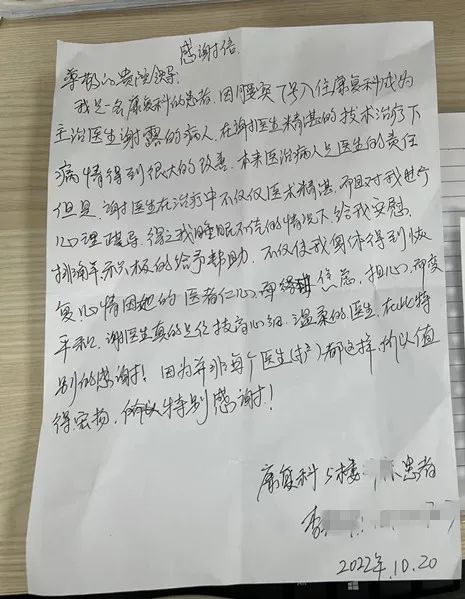 感谢信
尊敬的贵院领导:
我是一名康复科的患者,因腰突7号入住康复科成为
主治医生谢露的病人,在谢医生精湛的技术治疗下
病情得到很大的改善,本来医治病人是医生的责任
但是,谢医生在治疗中不仅仅医术精湛,而且对我进行
心理疏导,得之我睡眠不佳的情况下给我安慰,
排痛并积极的给予帮助,不仅使我身体得到恢
复,心情因她的医者仁心,而缓解焦虑,担心,而变
平和,谢医生真的是位技高心细,温柔的医生,在此特
别的感谢!因为并非每个医生(护)都这样,所以值
得宏扬,特别感谢!
康复科5楼 床患者
李
2022年.10.20